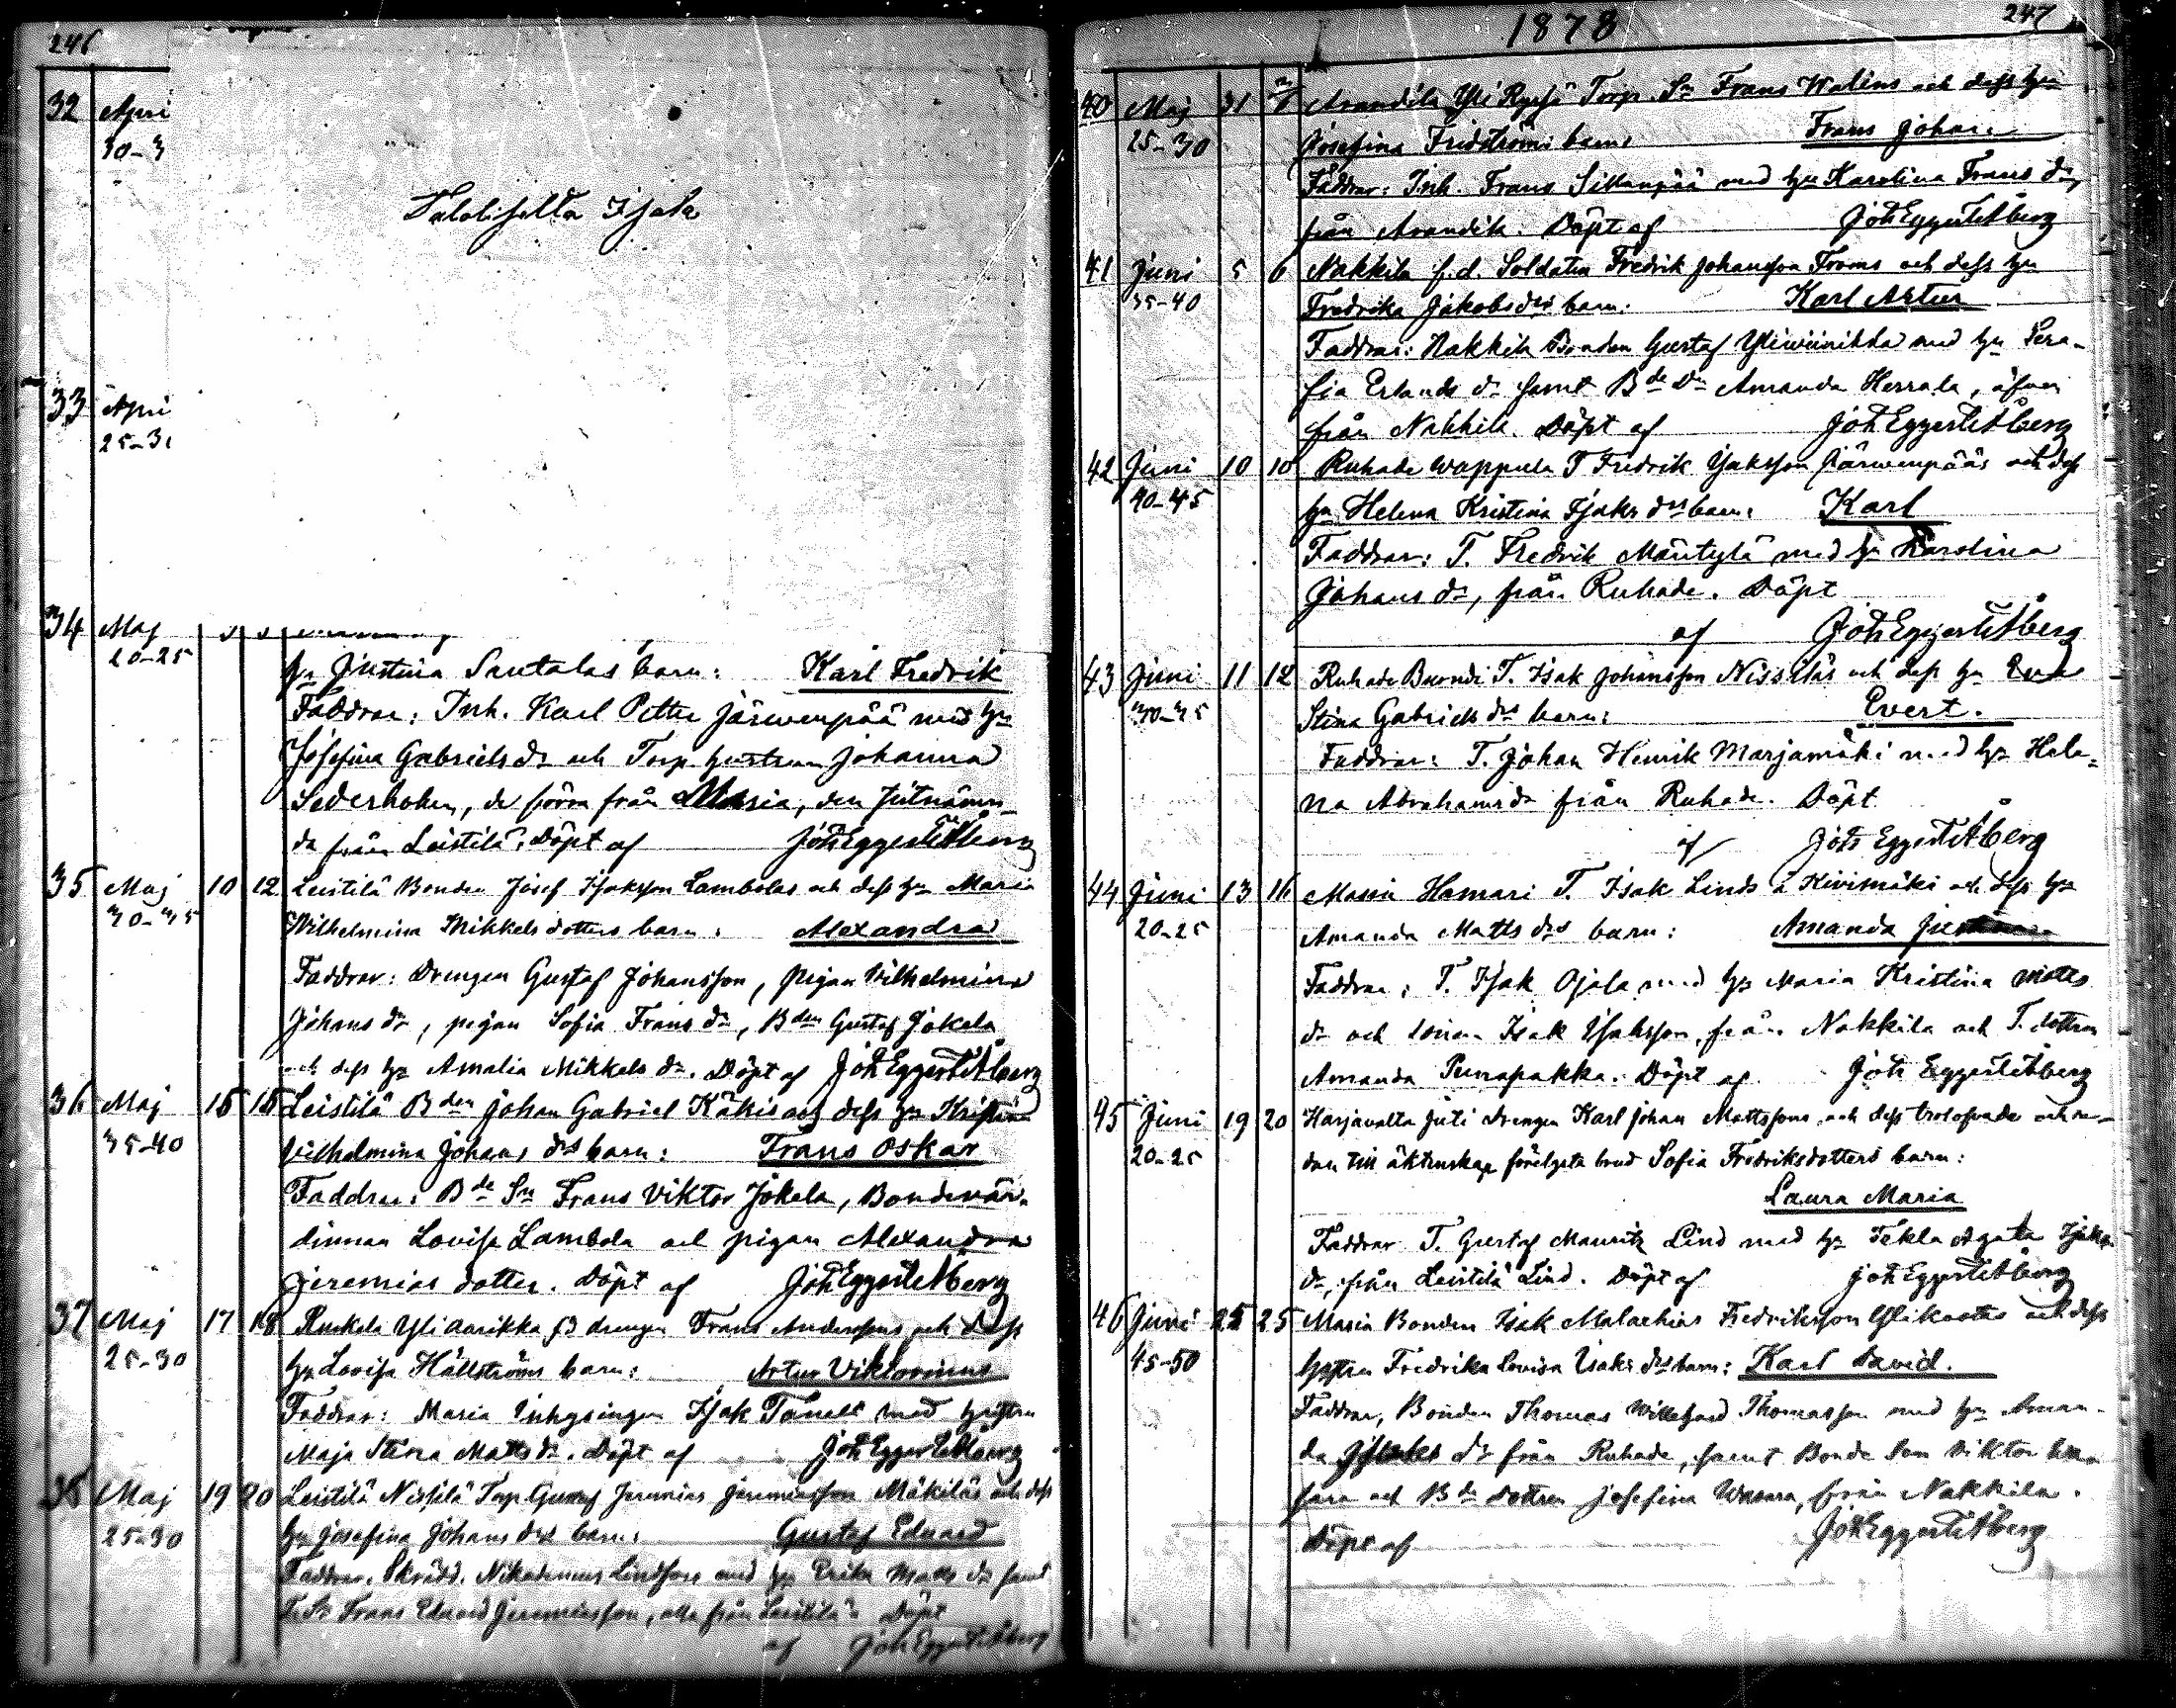 246
32 April
30-3
Salolisetta Isak
33 Apri
25-3
34 Maj
20-25 hu Justina Santalas barn: Karl Fredrik
Faddrar: Inh. Karl Petter Järwenpää med hu
Josefina Gabriels dr och Torp. hustrun Johanna
Sederholm, de förra från Masia, den sistnämn-
da från Leistilä. Döpt af Joh Eggert Åberg
35 Maj 10 12 Leistilä Bonden Josef Isaksson Lambolas och dess hu Maria
30-35 Wilhelmina Mikkels dotters barn: Alexandra
Faddrar: Drengen Gustaf Johansson, pigan Wilhelmina
Johans dr, pigan Sofia Frans dr, Bden Gustaf Jokela
och dess hu Amalia Mikkels dr. Döpt af Joh Eggert Åberg
36 Maj 15 15 Leistilä Bden Johan Gabriel Käkis och dess hu Kristina
35-40 Vilhelmina Johans drs barn: Frans Oskar
Faddrar: Bde Sn Frans Viktor Jokela, Bondevär-
dinnan Lovisa Lambola och pigan Alexandra
Jeremias dotter. Döpt af Joh Eggert Åberg
37 Maj 17 18 Ruskela Yli aarikka drengen Frans Anderssons och dess
25-30 hu Lovisa Hällströms barn: Artur Viktorinus
Faddrar: Masia Inhysingen Isak Tanell med hustrun
Maja Stina Matts dr. Döpt af Joh Eggert Åberg
38 Maj 19 20 Leistilä Nissilä Torp. Gustaf Jeremias Jeremiasson Mäkiläs och dess
25-30 hu Josefina Johans drs barn: Gustaf Eduard
Faddrar: Skrädd. Nikodemus Lindfors med hu Erika Isaks dr samt
T. Sn Frans Eduard Jeremiasson, alla från Leistilä. Döpt
af Joh Eggert Åberg
1878 247
40 Maj 31 Arandila Yli Torp. Sn Frans Walins och dess hu
25-30 Josefina Fridströms barn: Frans Johan
Faddrar: Inh. Frans Sillanpää med hu Karolina Frans dr,
från Arandila. Döpt af Joh Eggert Åberg
41 Juni 5 6 Nakkila f.d. Soldaten Fredrik Johansson Froms och dess hu
35-40 Fredrika Jakobs drs barn: Karl Artur
Faddrar: Nakkila Bonden Gustaf Yliwiinikka med hu Sera-
fia Erlands dr samt Bde dr Amanda Herrala, äfven
från Nakkila. Döpt af Joh Eggert Åberg
42 Juni 10 10 Ruhade Wappula T Fredrik Isaksson Järwenpääs och dess
40-45 hu Helena Kristina Isaks drs barn: Karl
Faddrar: T. Fredrik Mäntylä med hu Karolina
Johans dr, från Ruhade. Döpt
af Joh Eggert Åberg
43 Juni 11 12 Ruhade Buondi T. Isak Johansson Nissiläs och dess hu Eva
30-35 Stina Gabriels drs barn: Evert.
Faddrar: T. Johan Henrik Marjamäki med hu Hele-
na Abrahams dr från Ruhade. Döpt
af Joh Eggert Åberg
44 Juni 13 16 Masia Hamari T. Isak Linds å Kivimäki och dess hu
20-25 Amanda Matts drs barn: Amanda
Faddrar: T. Isak Ojala med hu Maria Kristina Matts
dr och sonen Isak Isaksson, från Nakkila och T. dottren
Amanda Punapakka. Döpt af Joh Eggert Åberg
45 Juni 19 20 Harjavalta Juti drengen Karl Johan Mattssons och dess trolofvade och re-
20-25 dan till äktenskap förelysta brud Sofia Fredriksdotters barn:
Laura Maria
Faddrar T. Gustaf Mauritz Lind med hu Tekla Agata Isaks
dr, från Leistilä Lind. Döpt af Joh Eggert Åberg
46 Juni 25 25 Masia Bonden Isak Malachias Fredriksson Ylikastes och dess
45-50 hustru Fredrika Lovisa Isaks drs barn: Karl David.
Faddrar, Bonden Thomas Willehard Thomasson med hu Aman-
da dr från Ruhade, samt Bonde Son Viktor Wa-
sara och Bde dottren Josefina Wasara, från Nakkila.
Döpt af Joh Eggert Åberg